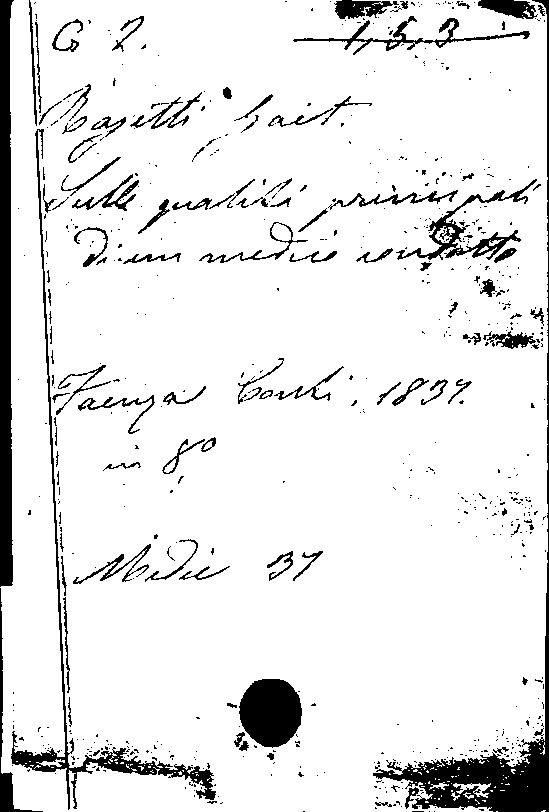 G 2. 1,5,3
Rasetti Gaet.
Sulle qualità principali
di un medico condotto
Faenza Conti. 1837.
in 8º
Medic 37